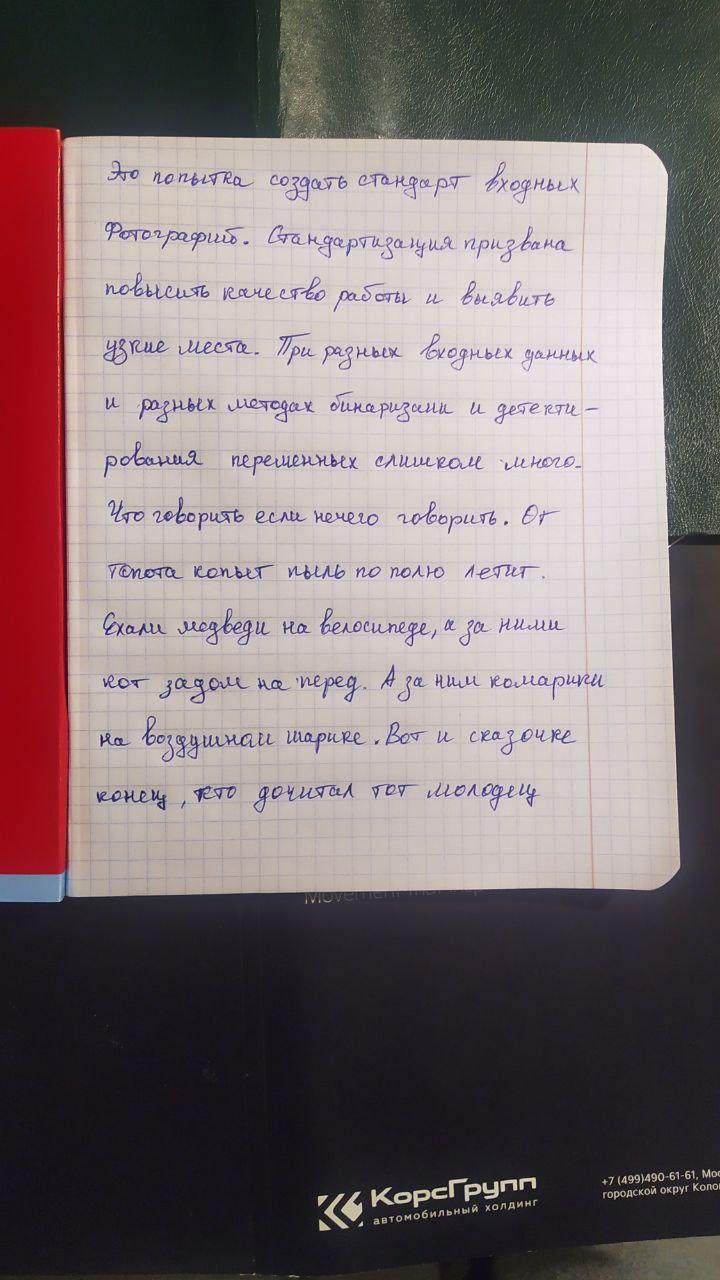 Это попытка создать стандарт входных
Фотографий. Стандартизация призвана
повысить качество работы и выявить
узкие места. При разных входных данных
и разных методах бинаризаии и детекти-
рования переменных слишком много.
Что говорить если нечего говорить. От
топота копыт пыль по полю летит.
Ехали медведи на велосипеде, а за ними
кот задом на перед. А за ним комарики
на воздушном шарике. Вот и сказочке
конец, кто дочитал тот молодец
Movement
КорсГрупп
автомобильный холдинг
+7 (499)490-61-61,
городской округ